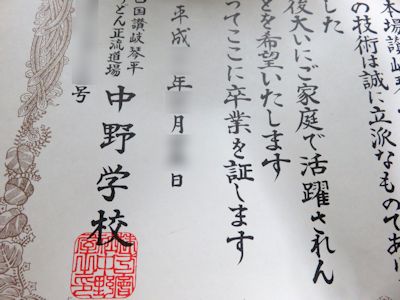 本場讃岐
の技術は誠に立派なものであり
した
後大いにご家庭で活躍されん
とを希望いたします
ってここに卒業を証します
平成 年 月 日
国讃岐琴平
どん正流道場
号
中野学校